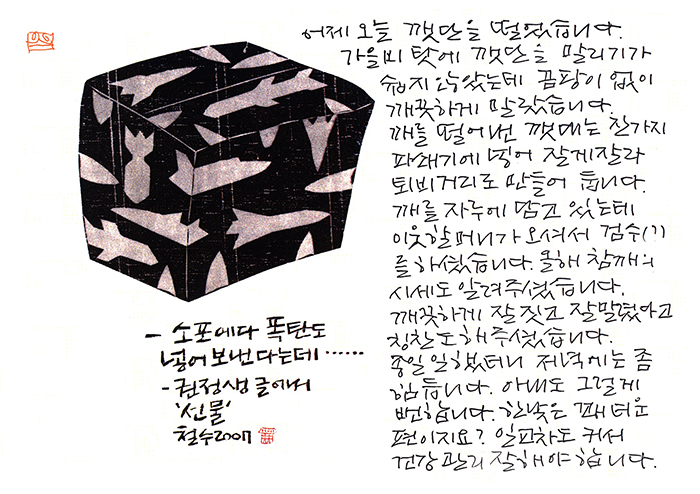 어제 오늘 깻단을 떨었습니다.
가을비 탓에 깻단을 말리기가
쉽지 않았는데 곰팡이 없이
깨끗하게 말랐습니다.
깨를 떨어낸 깻대는 잔가지
파쇄기에 넣어 잘게잘라
퇴비거리로 만들어 둡니다.
깨를 자루에 담고 있는데
이웃할머니가 오셔서 검수(!)
를 하셨습니다. 올해 참깨의
시세도 알려주셨습니다.
깨끗하게 잘 짓고 잘말렸다고
칭찬도 해주셨습니다.
종일 일했더니 저녁에는 좀
힘듭니다. 아내도 그렇게
말합니다. 한낮은 꽤 더운
편이지요? 일교차도 커서
건강 관리 잘해야 합니다.
- 소포에다 폭탄도
넣어 보낸다는데 ······
- 권정생 글에서
'선물'
철수2007